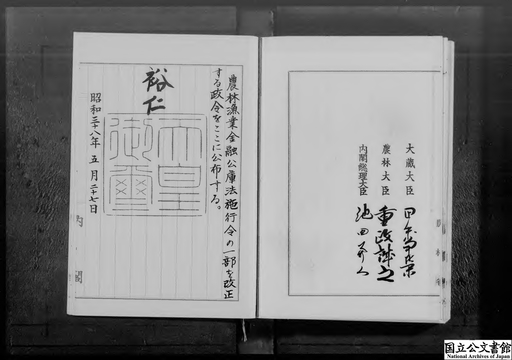 大蔵大臣 田中角榮
農林大臣 重政誠之
内閣総理大臣 池田勇人
農林漁業金融公庫法施行令の一部を改正
する政令をここに公布する。
裕仁
天皇
御璽
昭和三十八年五月二十七日
内閣
国立公文書館
National Archives of Japan